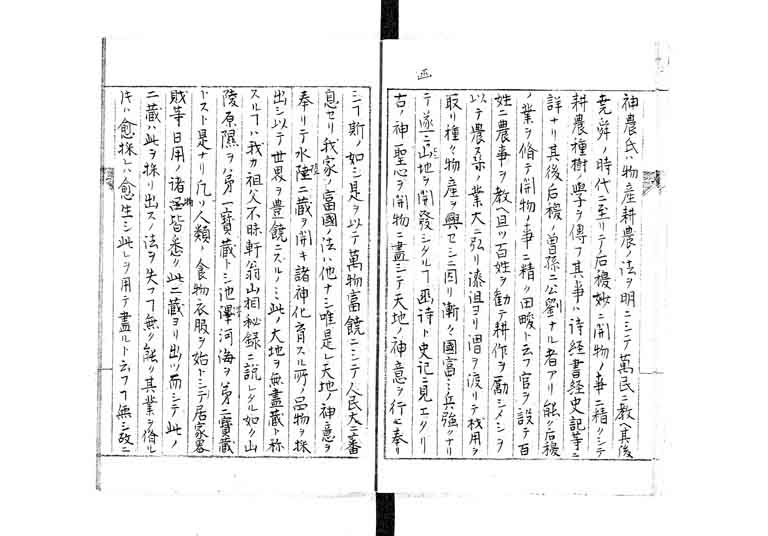 神農氏ハ物産耕農ノ法ヲ明ニシテ萬民ニ教ヘ其後
堯舜ノ時代ニ至リテ后稷妙ニ開物ノ事ニ精クシテ
耕農種樹ノ學ヲ傳フ其事ハ诗経書経史記等ニ
詳ナリ其後后稷ノ曽孫ニ公劉ナル者アリ能ク后稷
ノ業ヲ脩テ開物ノ事ニ精ク田畯ト云フ官ヲ設テ百
姓ニ農事ヲ教ヘ且ツ百姓ヲ勧テ耕作ヲ励シメシヲ
以テ農桒ノ業大ニ弘リ漆沮ヨリ渭ヲ渡リテ材用ヲ
取リ種々物産ヲ興セシニ因リ漸々國富ミ兵強クナリ
テ遂ニ山地ヲ開發シタルヿ豳诗ト史記ニ見エタリ
古ノ神聖心ヲ開物ニ盡シテ天地ノ神意ヲ行ヒ奉リ
シヿ斯ノ如シ是ヲ以テ萬物富饒ニシテ人民大ニ蕃
息セリ我家ノ富國ノ法ハ他ナシ唯是レ天地ノ神意ヲ
奉リテ水陸二藏ヲ開キ諸神化育スル所ノ品物ヲ採
出シ以テ世界ヲ豊饒ニスルノミ此ノ大地ヲ無盡藏ト称
スルヿハ我カ祖父不昧軒翁山相秘録ニ説レタル如ク山
陵原隰ヲ第一寶藏トシ池澤河海ヲ第二寶藏
トスト是ナリ凡ソ人類ノ食物衣服ヲ始トシテ居家器
財等日用ノ諸物皆悉ク此二藏ヨリ出ツ而シテ此ノ
二藏ハ此ヲ採リ出スノ法ヲ失フヿ無ク能ク其業ヲ脩ル
片ハ愈採レハ愈生シ此レヲ用テ盡ルト云フヿ無シ故ニ